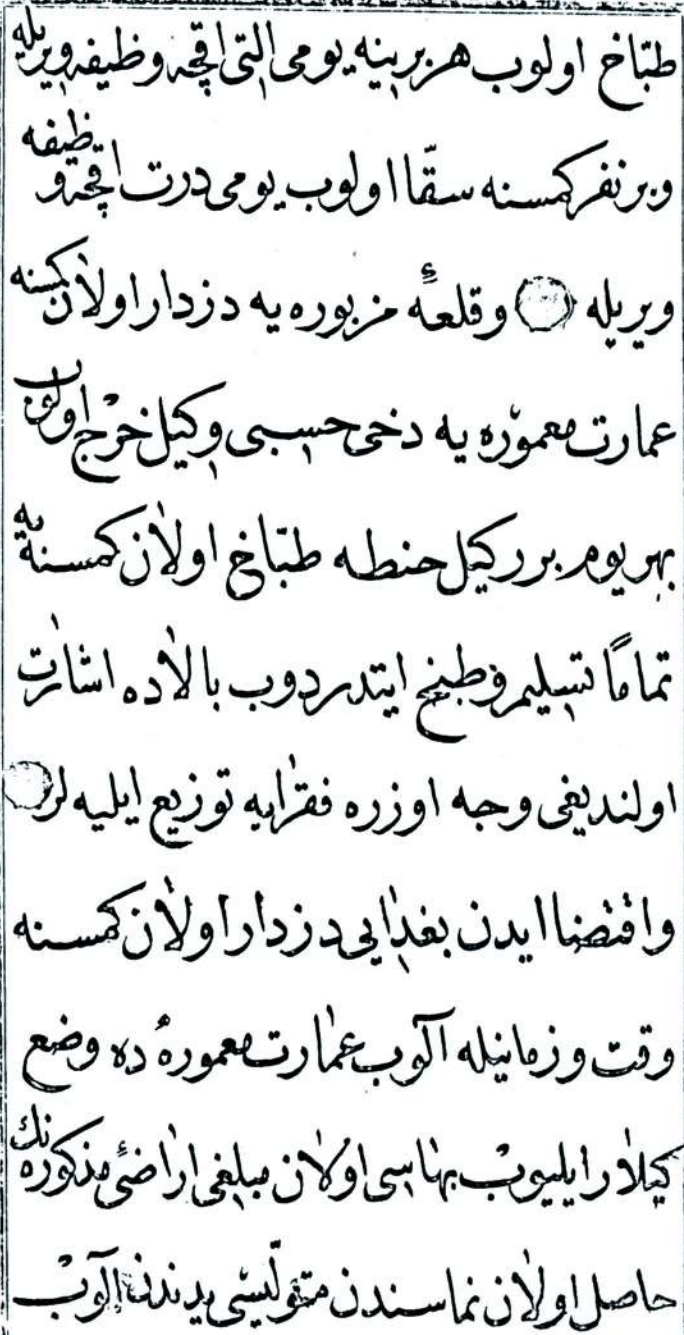 طبّاخ اولوب هر برینه یومی التی اقچه وظیفه ویریله
وبر نفر كمسنه سقّا اولوب یومی درت اقچه وظیفه
ویریله وقلعهٔ مزبوره یه دزدار اولان كمسنه
عمارت معموره یه دخی حسبی وكیل خرج اولوب
بهر یوم برر كیل حنطه طبّاخ اولان كمسنه یه
تماماً تسلیم وطبخ ایتدردوب بالاده اشارت
اولندیغی وجه اوزره فقرایه توزیع ایلیه لر
واقتضا ایدن بغدایی دزدار اولان كمسنه
وقت وزمانیله آلوب عمارت معموره ده وضع
كیلار ایلیوب بهاسی اولان مبلغی اراضئ مذكوره نك
حاصل اولان نماسندن متولّیسی یدندن آلوب